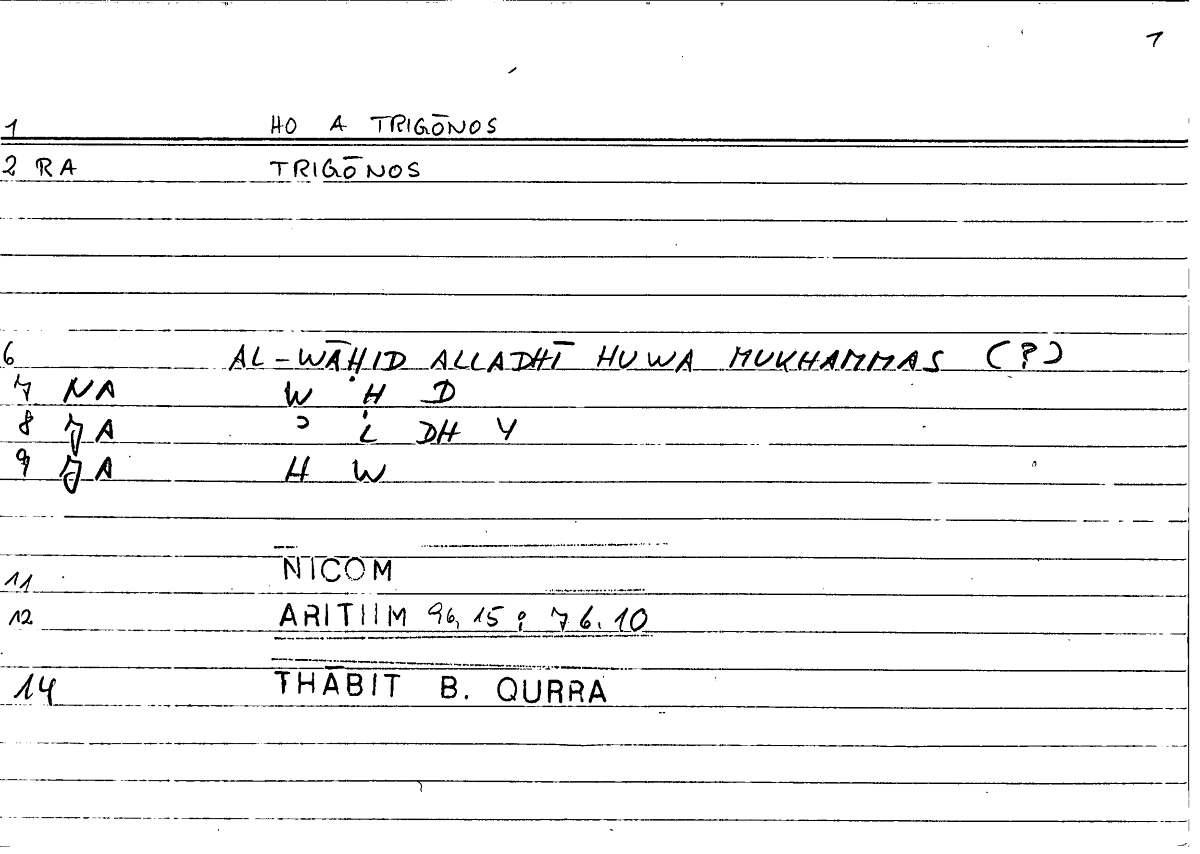 1
1 HO A TRIGŌNOS
2 RA TRIGŌNOS
6 AL-WĀḤID ALLADHĪ HUWA MUKHAMMAS (?)
7 NA W Ḥ D
8 JA ʾ L DH Y
9 JA H W
11 NICOM
12 ARITHM 96,15; 76.10
14 THĀBIT B. QURRA